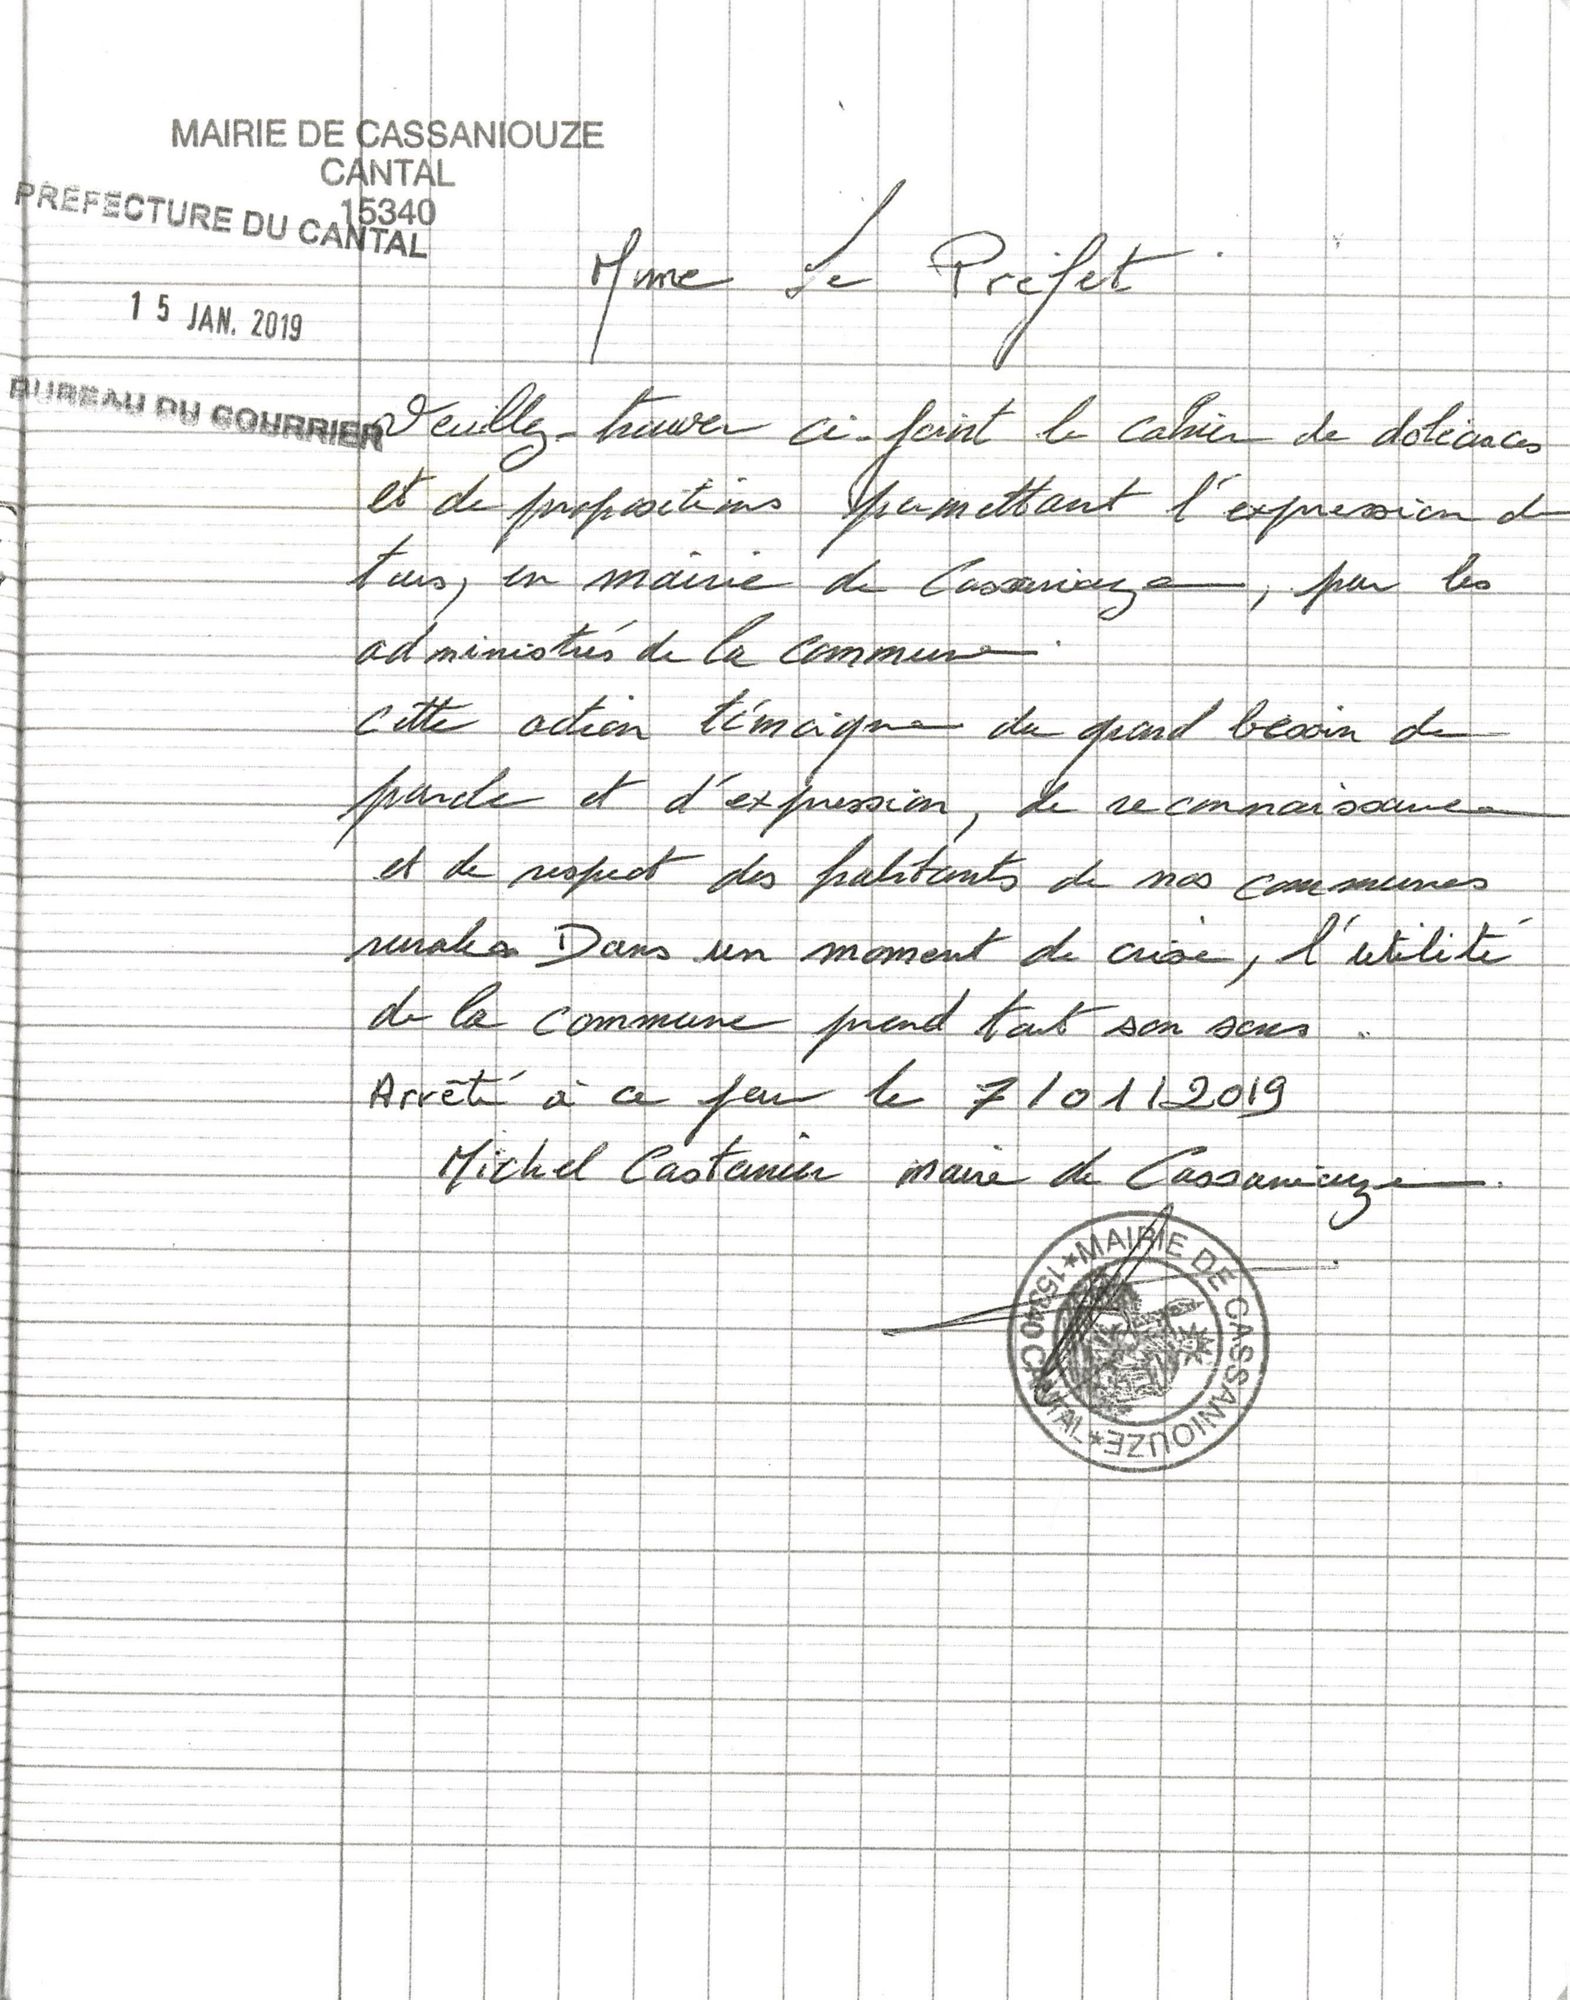 MAIRIE DE CASSANIOUZE
CANTAL
15340
PREFECTURE DU CANTAL
15 JAN. 2019
BUREAU DU COURRIER
Mme Le Préfet
Veuillez trouver ci-joint le cahier de doléances
et de propositions permettant l'expression de
tous, en mairie de Cassaniouze, par les
administrés de la commune.
Cette action témoigne du grand besoin de
parole et d'expression, de reconnaissance
et de respect des habitants de nos communes
rurales. Dans un moment de crise, l'utilité
de la commune prend tout son sens.
Arrêté à ce jour le 7/01/2019
Michel Castanier maire de Cassaniouze.
*MAIRIE DE CASSANIOUZE*
15340 CANTAL